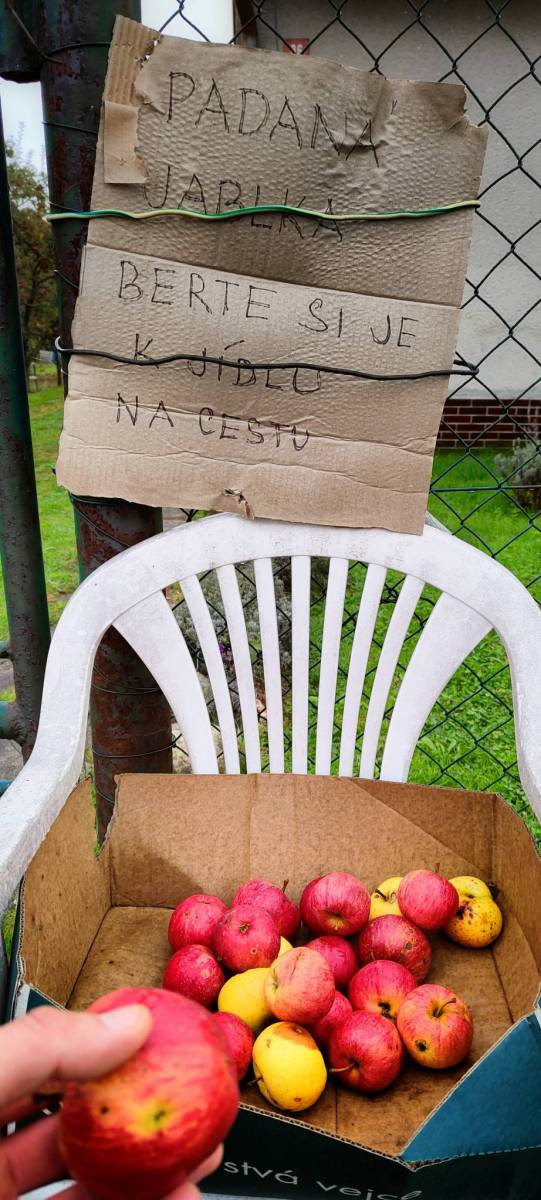 PADANÁ
JABLKA
BERTE SI JE
K JÍDLU
NA CESTU
stvá vejc